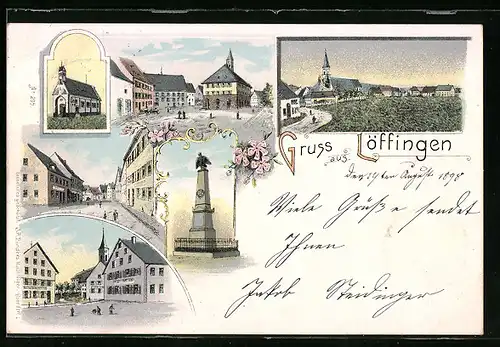 Gruss aus Löffingen
den 19ten August 1898
Viele Grüße sendet
Ihnen
Jakob Steidinger